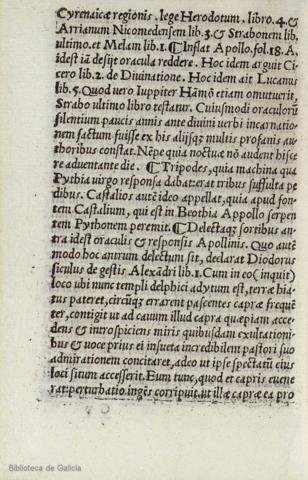 Cyrenaicæ regionis, lege Herodotum, libro.4.&
Arrianum Nicomedensem lib.3.& Strabonem lib.
ultimo.et Melam lib.1. ¶Inflat Apollo.fol.18.A.
idest iã desijt oracula reddere. Hoc idem arguit Ci-
cero lib.2. de Diuinatione. Hoc idem ait Lucanus
lib.5. Quod vero Iuppiter Hãmõ etiam omutuerit,
Strabo ultimo libro testatur. Cuiusmodi oraculorũ
silentium paucis annis ante diuini verbi incarnatio-
nem factum fuisse ex his alijsq; multis profanis au-
thoribus constat. Nẽpe quia noctuæ nõ audent hisce
re aduentante die. ¶Tripodes, quia machina qua
Pythia virgo responsa dabat:erat tribus suffulta pe
dibus. Castalios autẽ ideo appellat, quia apud fon-
tem Castalium, qui est in Beothia Appollo serpen
tem Pythonem peremit. ¶Delectaq; sortibus an-
tra idest oraculis & responsis Apollinis. Quo autẽ
modo hoc antrum delectum sit, declarat Diodorus
siculus de gestis Alexãdri lib.1. Cum in eo (inquit)
loco ubi nunc templi delphici adytum est, terræ hia-
tus pateret, circũq; errarent pascentes capræ frequẽ
ter, contigit ut ad cauum illud capra quæpiam acce-
dens & introspiciens miris quibusdam exultationi-
bus & uoce prius et insueta incredibilem pastori suo
admirationem concitaret, adeo ut ipse spectatũ eius
loci situm accesserit. Eum tunc, quod et capris euene
rat: perturbatio ingẽs corripuit. ut illæ capræ ea pro
Biblioteca de Galicia